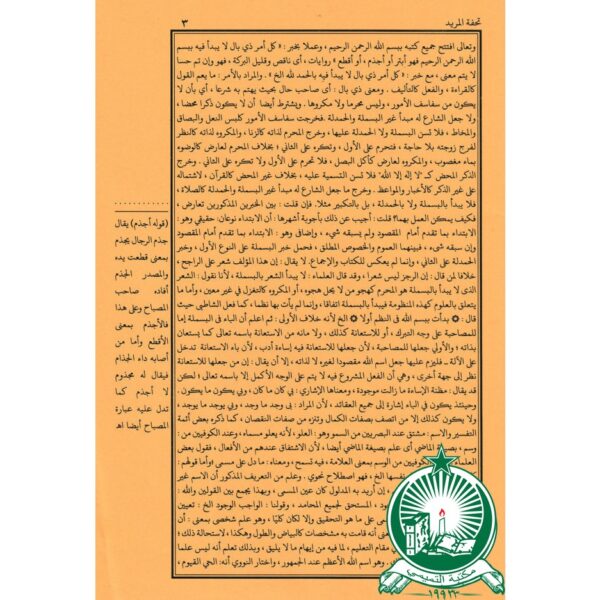 تحفة المريد
٣
وتعالى افتتح جميع كتبه ببسم الله الرحمن الرحيم ، وعملا بخبر : « كل أمر ذي بال لا يبدأ فيه ببسم
الله الرحمن الرحيم فهو أبتر أو أجذم ، أو أقطع » روايات ، أى ناقص وقليل البركة ، فهو وإن تم حسا
لا يتم معنى ، مع خبر : « كل أمر ذي بال لا يبدأ فيه بالحمد لله الخ » . والمراد بالأمر : ما يعم القول
كالقراءة ، والفعل كالتأليف . ومعنى ذي بال : أى صاحب حال بحيث يهتم به شرعا ، أي بأن لا
يكون من سفاسف الأمور ، وليس محرما ولا مكروها . ويشترط أيضا أن لا يكون ذكرا محضا ،
ولا جعل الشارع له مبدأ غير البسملة والحمدلة . فخرجت سفاسف الأمور كلبس النعل والبصاق
والمخاط ، فلا تسن البسملة ولا الحمدلة عليها ، وخرج المحرم لذاته كالزنا ، والمكروه لذاته كالنظر
لفرج زوجته بلا حاجة ، فتحرم على الأول ، وتكره على الثاني ؛ بخلاف المحرم لعارض كالوضوء
بماء مغصوب ، والمكروه لعارض كأكل البصل ، فلا تحرم على الأول ولا تكره على الثاني . وخرج
الذكر المحض كـ "لا إله إلا الله" فلا تسن التسمية عليه ، بخلاف غير المحض كالقرآن ، لاشتماله
على غير الذكر كالأخبار والمواعظ . وخرج ما جعل الشارع له مبدأ غير البسملة والحمدلة كالصلاة ،
فلا يبدأ بالبسملة ولا بالحمدلة ، بل بالتكبير مثلا. فإن قلت : بين الخبرين المذكورين تعارض ،
فكيف يمكن العمل بهما؟ قلت : أجيب عن ذلك بأجوبة أشهرها : أن الابتداء نوعان: حقيقي وهو :
الابتداء بما تقدم أمام المقصود ولم يسبقه شيء ، وإضافى وهو : الابتداء بما تقدم أمام المقصود
وإن سبقه شىء ، فبينهما العموم والخصوص المطلق ، فحمل خبر البسملة على النوع الأول ، وخبر
الحمدلة على الثاني ، وإنما لم يعكس للكتاب والإجماع. لا يقال : إن هذا المؤلف شعر على الراجح ،
خلافا لمن قال : إن الرجز ليس شعرا ، وقد قال العلماء : لا يبدأ الشعر بالبسملة ، لأنا نقول : الشعر
الذى لا يبدأ بالبسملة هو المحرم كهجو من لا يحل هجوه ، أو المكروه كالتغزل في غير معين ، وأما ما
يتعلق بالعلوم كهذه المنظومة فيبدأ بالبسملة اتفاقا ، وإنما لم يأت بها نظما ، كما فعل الشاطبى حيث
قال : ۞ بدأت ببسم الله فى النظم أولا ۞ الخ لأنه خلاف الأولى : ثم اعلم أن الباء فى البسملة إما
للمصاحبة على وجه التبرك ، أو للاستعانة كذلك ، ولا مانه من الاستعانة باسمه تعالى كما يستعان
بذاته ؛ والأولى جعلها للمصاحبة ، لأن جعلها للاستعانة فيه إساءة أدب ، لأن باء الاستعانة تدخل
على الآلة _ فليزم عليها جعل اسم الله مقصودا لغيره لا لذاته ، إلا أن يقال : إن من جعلها للاستعانة
نظر إلى جهة أخرى ، وهي أن الفعل المشروع فيه لا يتم على الوجه الأكمل إلا باسمه تعالى ؛ لكن
قد يقال : مظنة الإساءة ما زالت موجودة ، ومعناها الإشارى : بي كان ما كان ، وبي يكون ما يكون .
وحينئذ يكون في الباء إشارة إلى جميع العقائد ، لأن المراد : بى وجد ما وجد ، وبي يوجد ما يوجد ،
ولا يكون كذلك إلا من اتصف بصفات الكمال وتنزه عن صفات النقصان ، كما ذكره بعض أئمة
التفسير والاسم : مشتق عند البصريين من السمو وهو : العلو ، لأنه يعلو مسماه ، وعند الكوفيين من
وسم ، بصيغة الماضي أى علم بصيغة الماضى أيضا ، لأن الاشتقاق عندهم من الأفعال ، فقول بعض
العلماء الكوفيين من الوسم بمعنى العلامة ، فيه تسمح ، ومعناه : ما دل على مسمى ؛ وأما قولهم :
فى نفسها الخ ، فهو اصطلاح نحوي . وعلم من التعريف المذكور أن الاسم غير
، إن أريد به المدلول كان عين المسمى ، وبهذا يجمع بين القولين والله :
المستحق لجميع المحامد ، وقولنا : الواجب الوجود الخ : تعيين
على ما هو التحقيق وإلا لكان كليا ، وهو علم شخصى بمعنى : أن
أنه قامت به مشخصات كالبياض والطول وهكذا ، لاستحالة ذلك ؛
مقام التعليم ، لما فيه من إيهام ما لا يليق ، وبذلك تعلم أنه ليس علما
وهو اسم الله الأعظم عند الجمهور ، واختار النووي أنه : الحي القيوم ،
(قوله أجذم) يقال
جذم الرجال يجذم
بمعنى قطعت يده
والمصدر الجذم
أفاده صاحب
المصباح وعلى هذا
فالأجذم بمعنى
الأقطع وأما من
أصابه داء الجذام
فيقال له مجذوم
لا أجذم كما
تدل عليه عبارة
المصباح أيضا اهـ
مكتبة التميمي
١٩٩٢٣